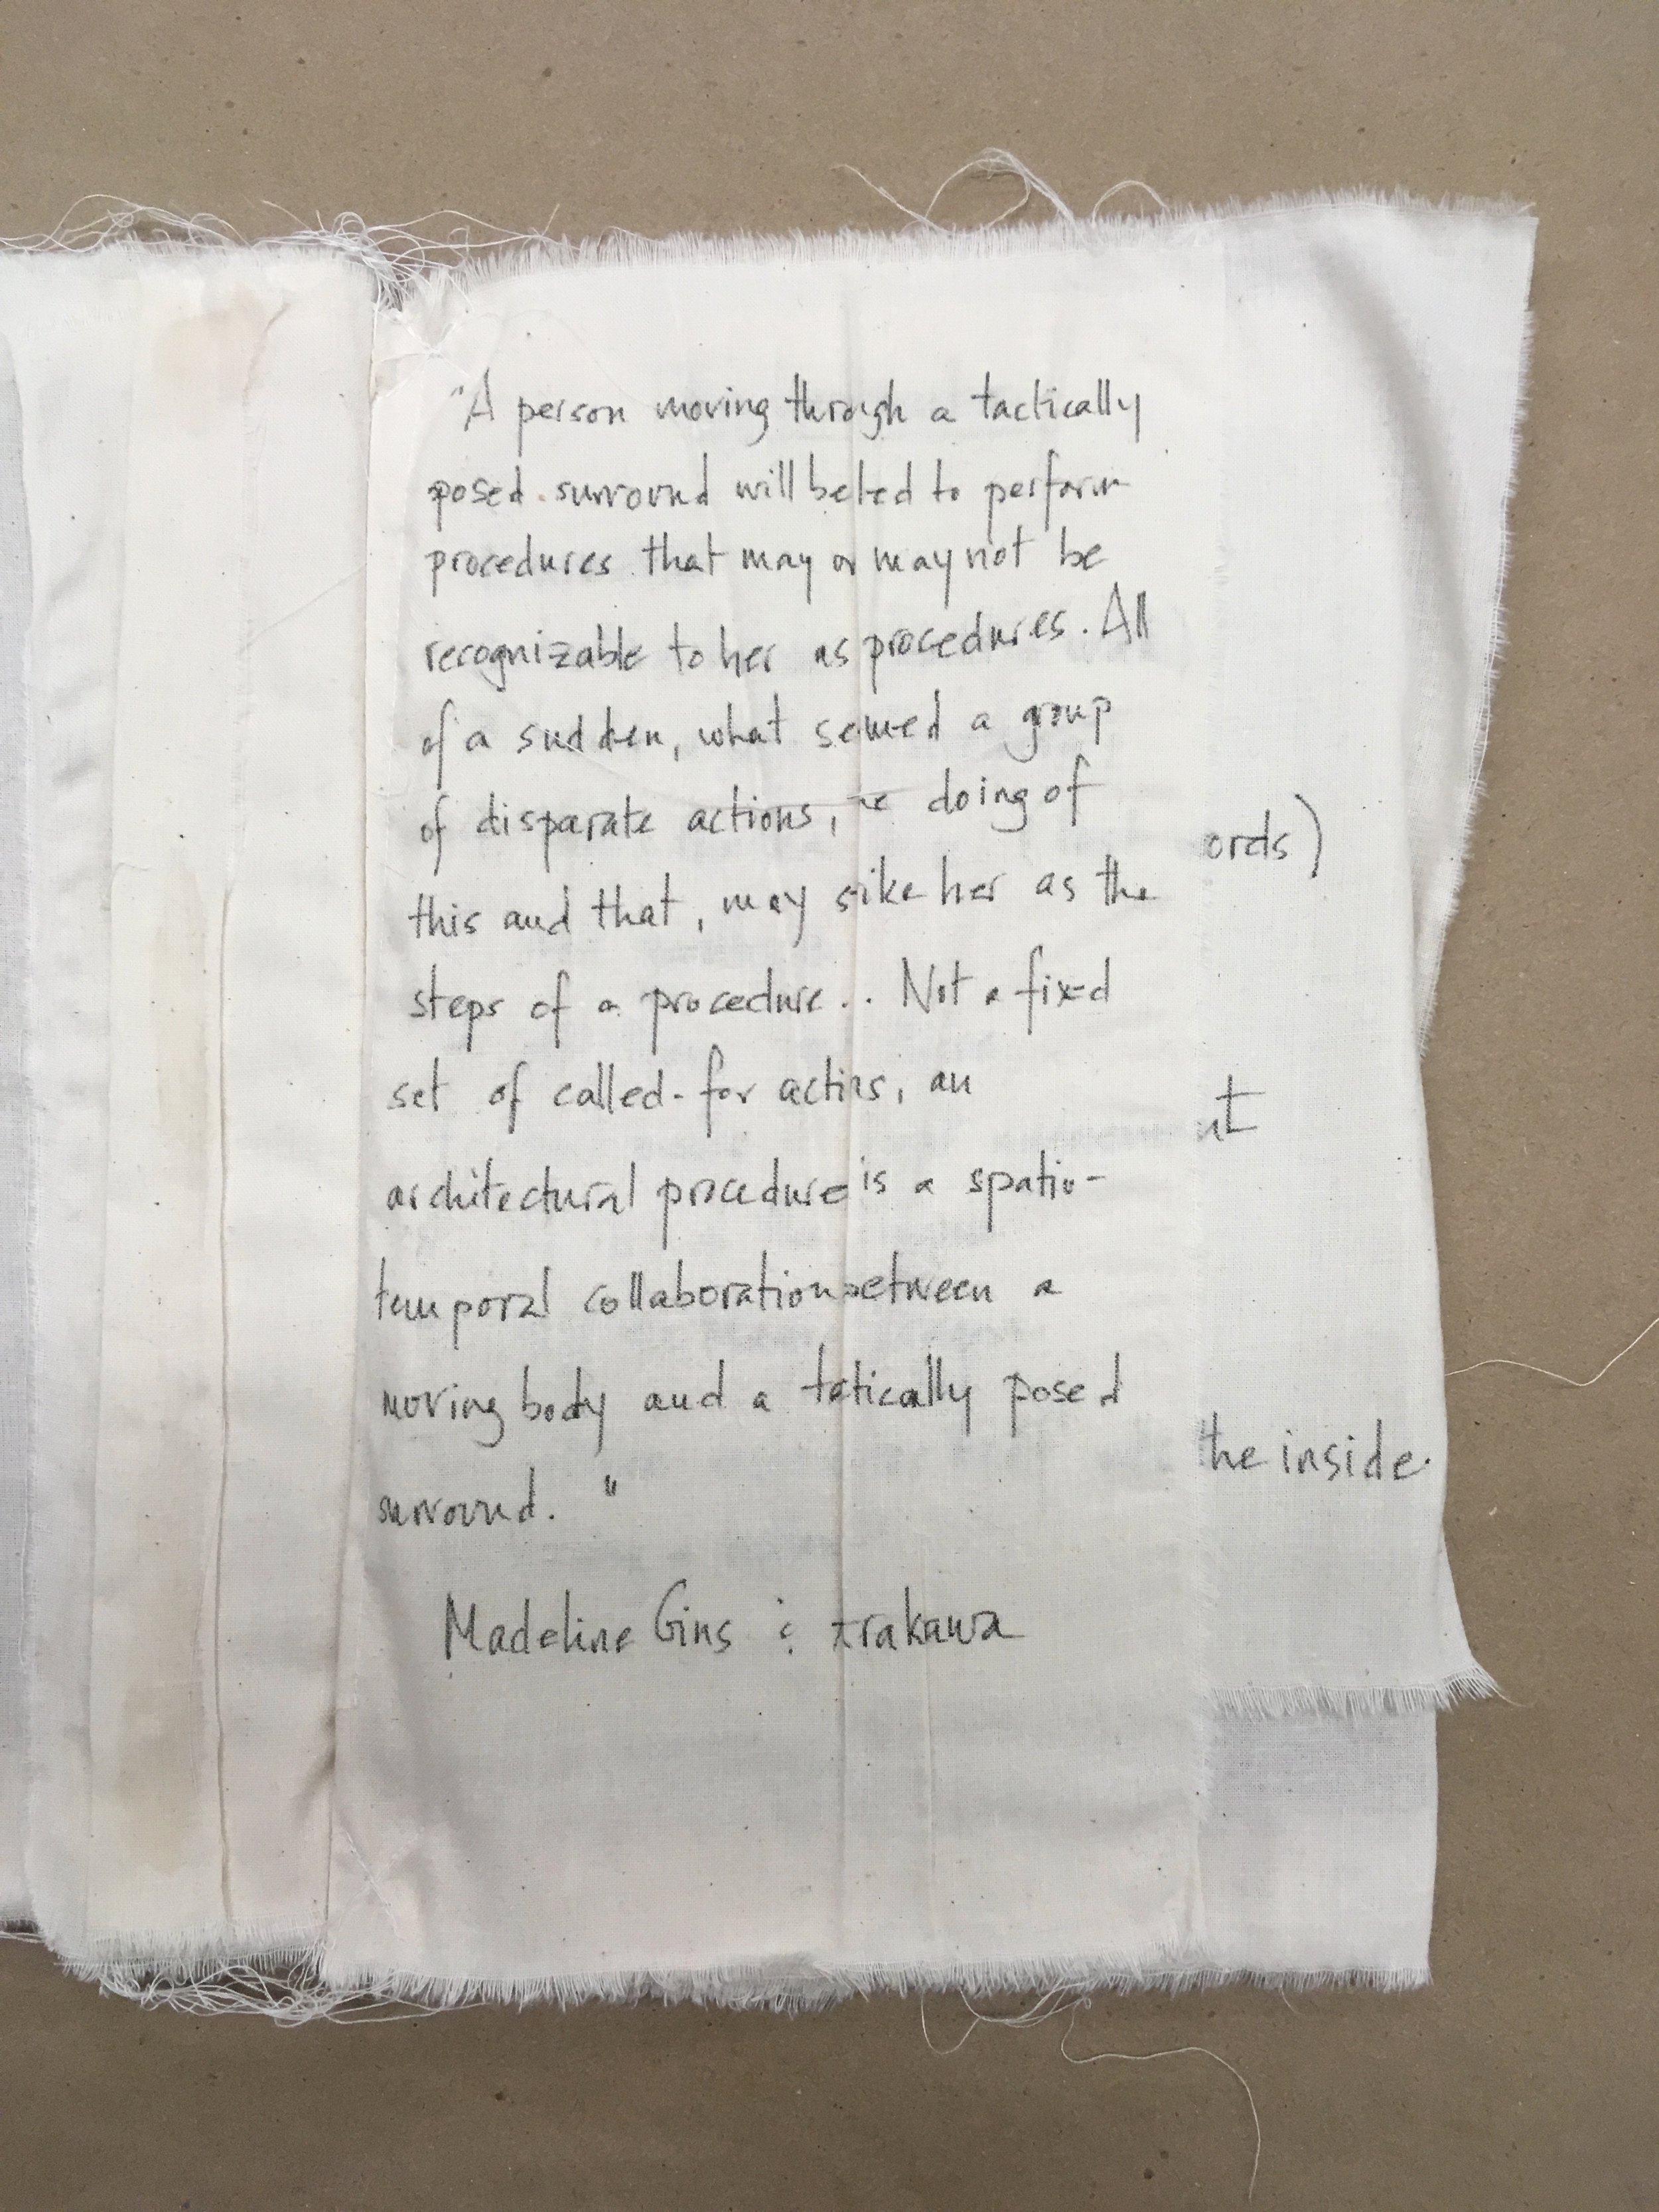 "A person moving through a tactically
posed surround will be led to perform
procedures that may or may not be
recognizable to her as procedures. All
of a sudden, what seemed a group
of disparate actions, doing of
this and that, may sike her as the
steps of a procedure.. Not a fixed
set of called-for actins, an
architectural procedure is a spatio-
temporal collaboration between a
moving body and a tatically posed
surround. "
Madeline Gins & Arakawa
ords)
nt
he inside.